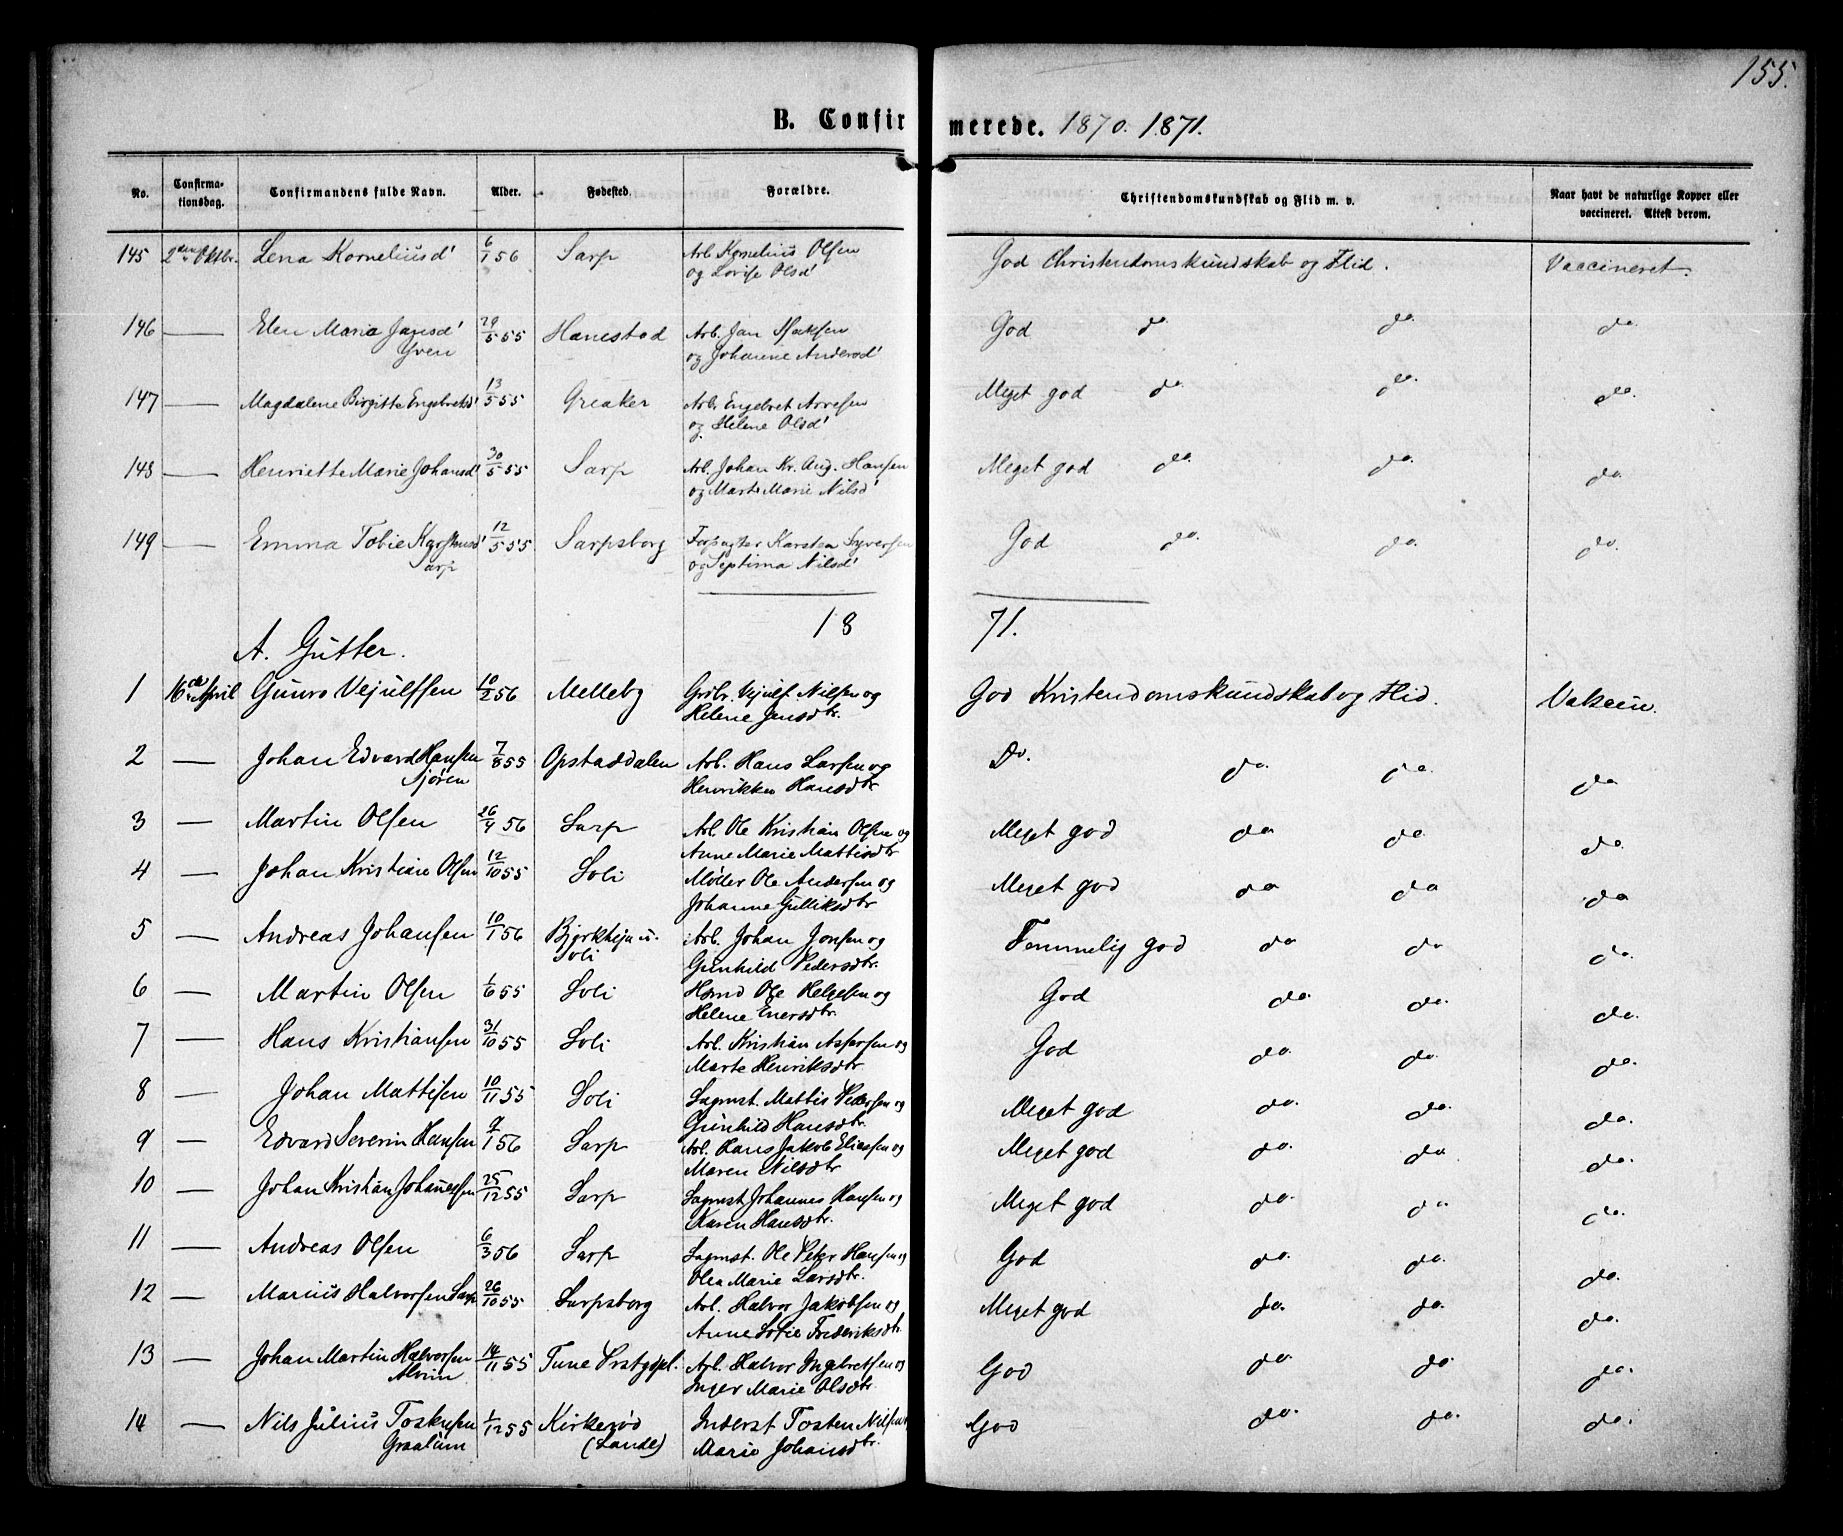 155.
B. Confirmerede. 1870. 1871.
No. Confirmationsdag. Confirmandens fulde Navn. Alder. Fødested. Forældre. Christendomskundskab og Flid m. v. Naar havt de naturlige Kopper eller vaccineret. Attest derom.
145 2den Oktbr. Lena Korneliusd' 6/1 56 Sarp Arb. Kornelius Olsen God Christendomskundskab og Flid. Vaccineret.
og Lovise Olsd'
146 — Elen Maria Jansd' 29/5 55 Hanestad Arb. Jan Isaksen God do. do. do.
Yven og Johanne Andersd'
147 — Magdalene Birgitte Engebretsd' 13/5 55 Greaker Arb. Engebret Arvesen Meget god do. do. do.
og Helene Olsd'
148 — Henriette Marie Johansd' 30/5 55 Sarp Arb. Johan Kr. Aug. Hansen Meget god do. do. do.
og Marte Marie Nilsd'
149 — Emma Tobie Karstensd' 12/5 55 Sarpsborg Forpagter Karsten Syversen God do. do. do.
Sarp og Septima Nilsd'
18 71.
A. Gutter.
1 16de April Gunro Vejulfsen 10/2 56 Melleby Grbr. Vejulf Nilsen og God Kristendomskundskab og Flid. Vakcin.
Helene Jensdtr.
2 — Johan Edvard Hansen 7/8 55 Opstaddalen Arb. Hans Larsen og Do. do. do. do
Sjøren Henrikke Hansdtr
3 — Martin Olsen 26/4 56 Sarp Arb. Ole Kristian Olsen og Meget god do do. do.
Anne Marie Mattisdtr
4 — Johan Kristian Olsen 12/10 55 Soli Møller Ole Andersen og Meget god do do do
Johanne Gulliksdtr
5 — Andreas Johansen 10/1 56 Bjørkhejn u. Arb. Johan Jonsen og Temmelig god do do do.
Soli Gunhild Pedersdtr.
6 — Martin Olsen 1/6 55 Soli Hsmd Ole Helgesen og God do. do. do.
Helene Enersdtr.
7 — Hans Kristiansen 31/10 55 Soli Arb. Kristian Asforsen og God do. do. do.
Marte Henriksdtr
8 — Johan Mattisen 10/11 55 Soli Sagmst. Mattis Pedersen og Meget god do. do. do.
Gunhild Hansdtr.
9 — Edvard Severin Hansen 9/1 56 Sarp Arb. Hans Jakob Eliassen og Meget god do. do do.
Maren Nilsdtr
10 — Johan Kristian Johanessen 25/12 55 Sarp Sagmst Johannes Hansen og Meget god do. do do.
Karen Hansdtr.
11 — Andreas Olsen 6/3 56 Sarp Sagmst. Ole Peter Hansen og God do. do. do.
Olea Marie Larsdtr.
12 — Marius Halvorsen Sarp 26/10 55 Sarpsborg Arb. Halvor Jakobsen og Meget god do. do. do.
Anne Sofie Frederiksdtr.
13 — Johan Martin Halvorsen 14/11 55 Tune Prstgdpl. Arb. Halvor Ingebretsen og God do. do. do.
Alvim Inger Marie Olsdtr.
14 — Nils Julius Tostensen 1/12 55 Kirkerød Inderst Tosten Nilsen God do. do. do.
Graalum (Lande) Marie Johansdtr.